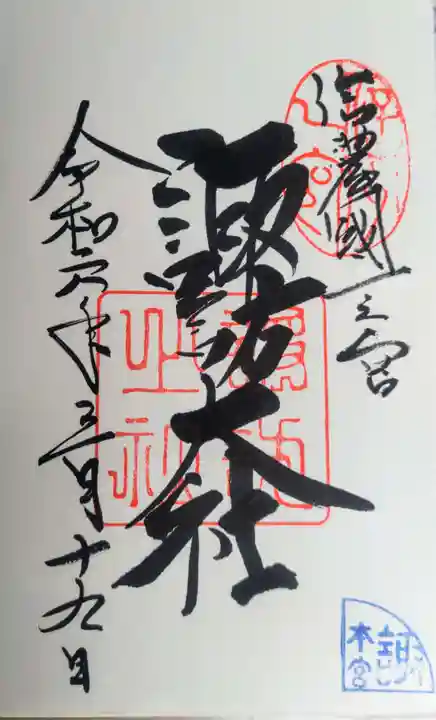 信濃國一之宮
諏訪大社
令和六年三月十九日
諏訪
之社
本宮